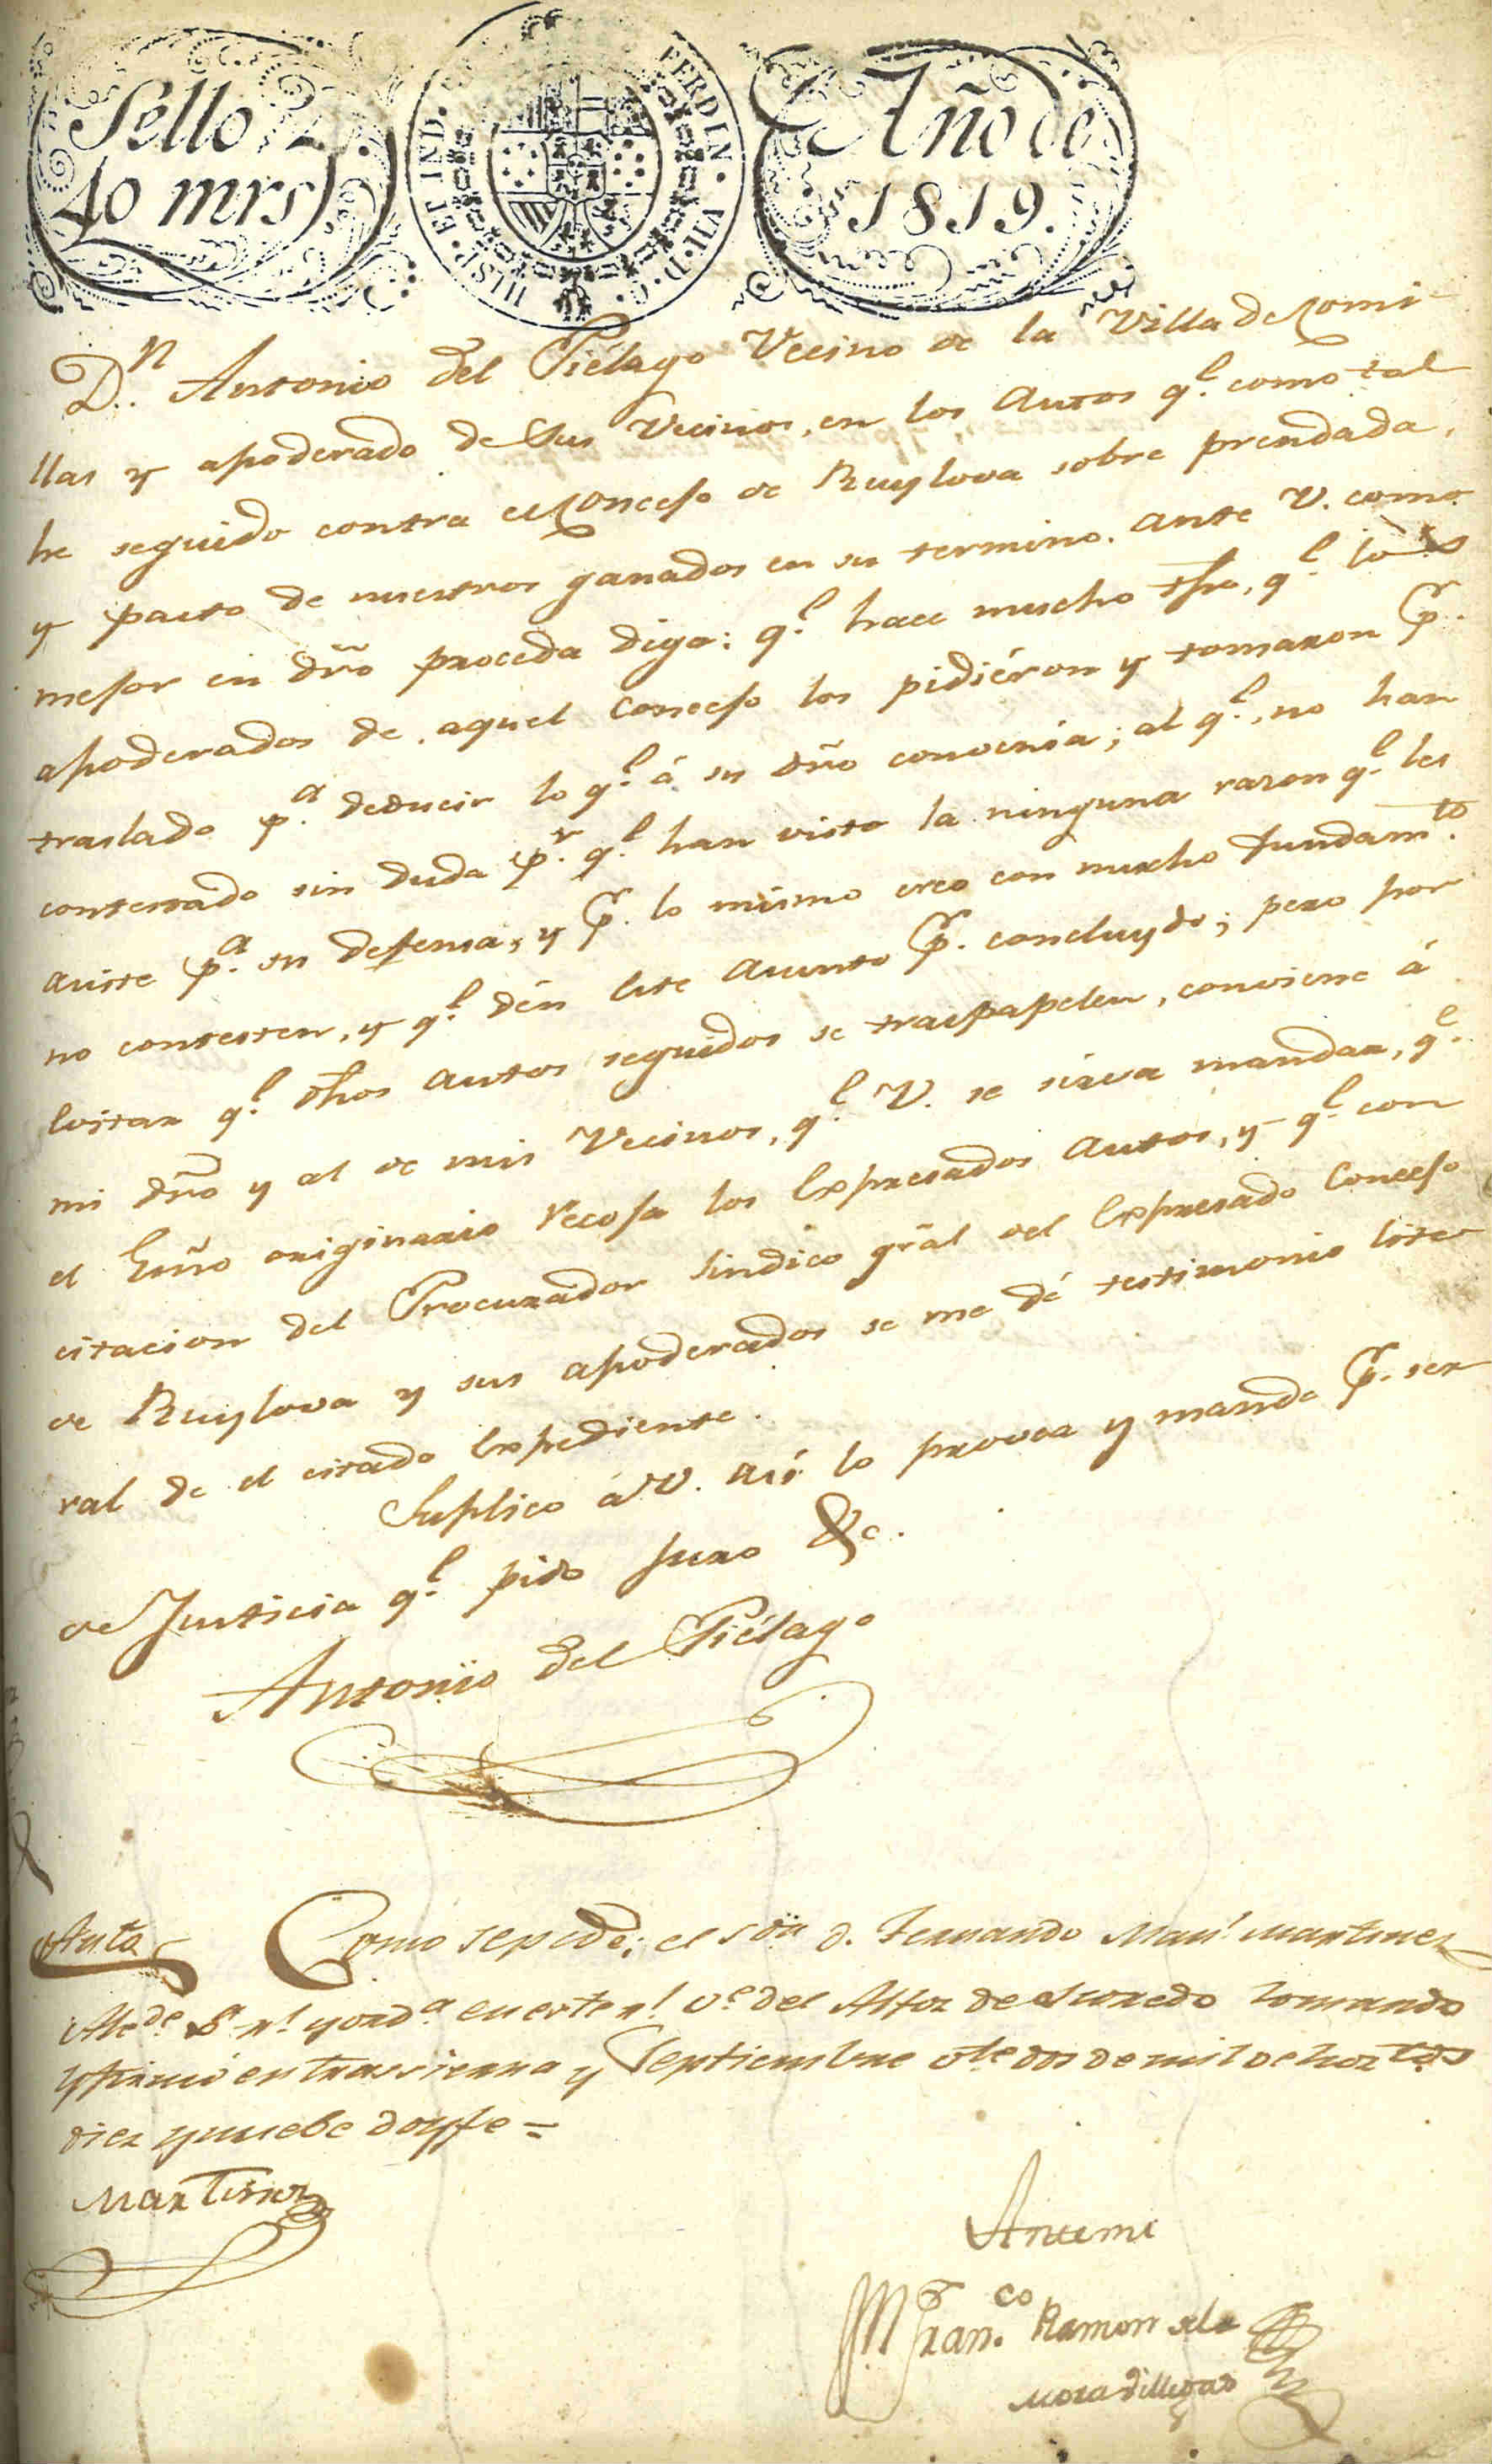 Sello 4º.
40 mrs
HISP. ET IND.
FERDIN. VII. D. G.
Año de
1819.
Dⁿ. Antonio del Piélago Vecino de la Villa de Comi-
llas y apoderado de sus Vecinos, en los autos qᵉ. como tal
he seguido contra el Concejo de Ruylova sobre prendada,
y pasto de nuestros ganados en su termino. ante V. como
mejor en dro̅ proceda digo: qᵉ. hace mucho tpo̅, qᵉ. los
apoderados de aquel concejo los pidiéron y tomaron p̃.
traslado pᵃ. deducir lo qᵉ. á su dro̅ convenia; al qᵉ. no han
contestado sin duda pʳ. qᵉ. han visto la ninguna razon qᵉ. les
asiste pᵃ. su defensa, y p̃. lo mismo creo con mucho fundamᵗᵒ.
no contesten, y qᵉ. dén este asunto p̃. concluydo; pero por
evitar qᵉ. dhos autos seguidos se traspapelen, conviene á
mi dro̅ y al de mis Vecinos, qᵉ. V. se sirva mandar, qᵉ.
el Esño originario recoja los expresados autos, y qᵉ. con
citacion del Procurador sindico gr̃al del expresado Concejo
de Ruylova y sus apoderados se me dé testimonio lite-
ral de el citado expediente.
Suplico á V. asi lo provea y mande p̃. ser
de Justicia qᵉ. pido juro &c.
Antonio del Piélago
Auto
Como se pide: el sór d. Fernando Manˡ. Martinez
Alcᵈᵉ. pʳ. s. y ordᵃ en este rˡ. vᵉ. del Alfoz de Lloredo lo mando
y firmó en trassierra y Septiembre vᵗᵉ dos de mil ochoztᵒˢ
diez y nuebe doy fe =
Martinez
Antemi
Franᶜᵒ. Ramon de la
Moradillegas